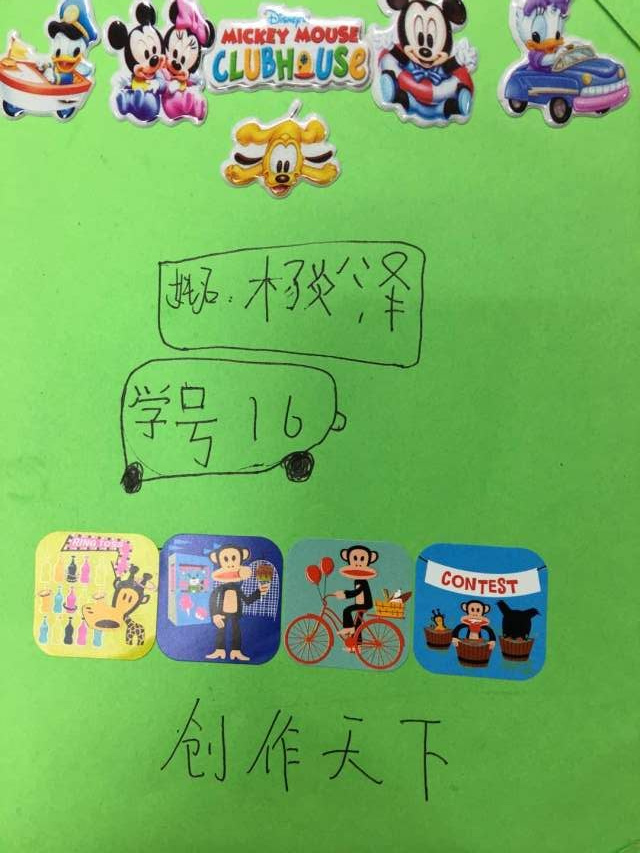 Disney
MICKEY MOUSE
CLUBHOUSE
姓名：泽
学号 16
RING TOSS
CONTEST
创作天下